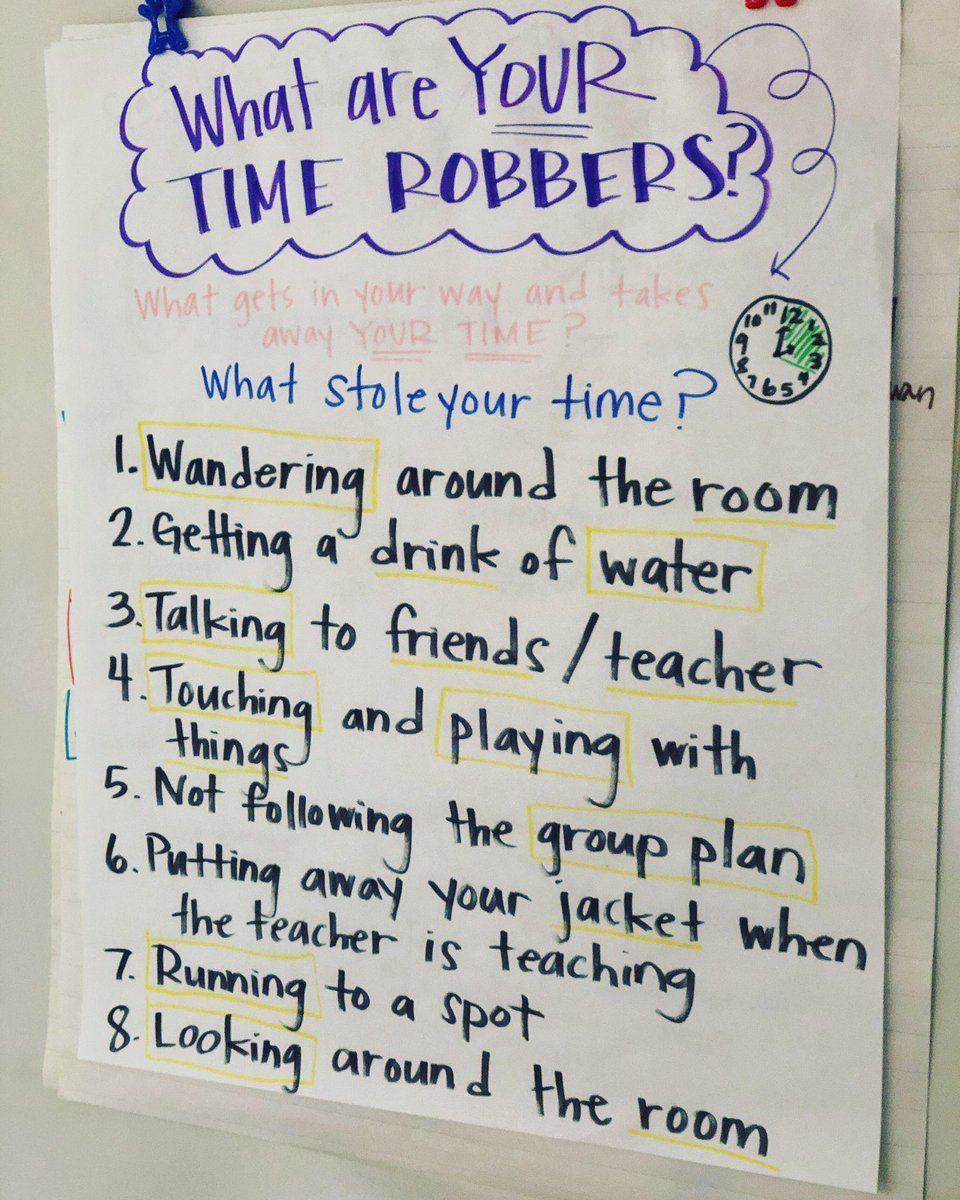 What are YOUR
TIME ROBBERS?
What gets in your way and takes
away YOUR TIME?
What stole your time?
12 1 2 3 4 5 6 7 8 9 10 11
1. Wandering around the room
2. Getting a drink of water
3. Talking to friends / teacher
4. Touching and playing with
things
5. Not following the group plan
6. Putting away your jacket when
the teacher is teaching
7. Running to a spot
8. Looking around the room